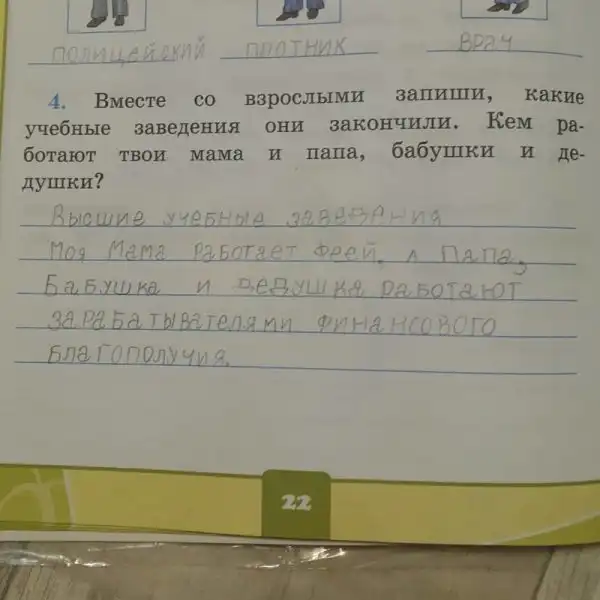 полицейский плотник врач
4. Вместе со взрослыми запиши, какие
учебные заведения они закончили. Кем ра-
ботают твои мама и папа, бабушки и де-
душки?
Высшие учебные заведения
Моя Мама работает феей. А Папа,
Бабушка и дедушка работают
зарабатывателями финансового
благополучия.
22